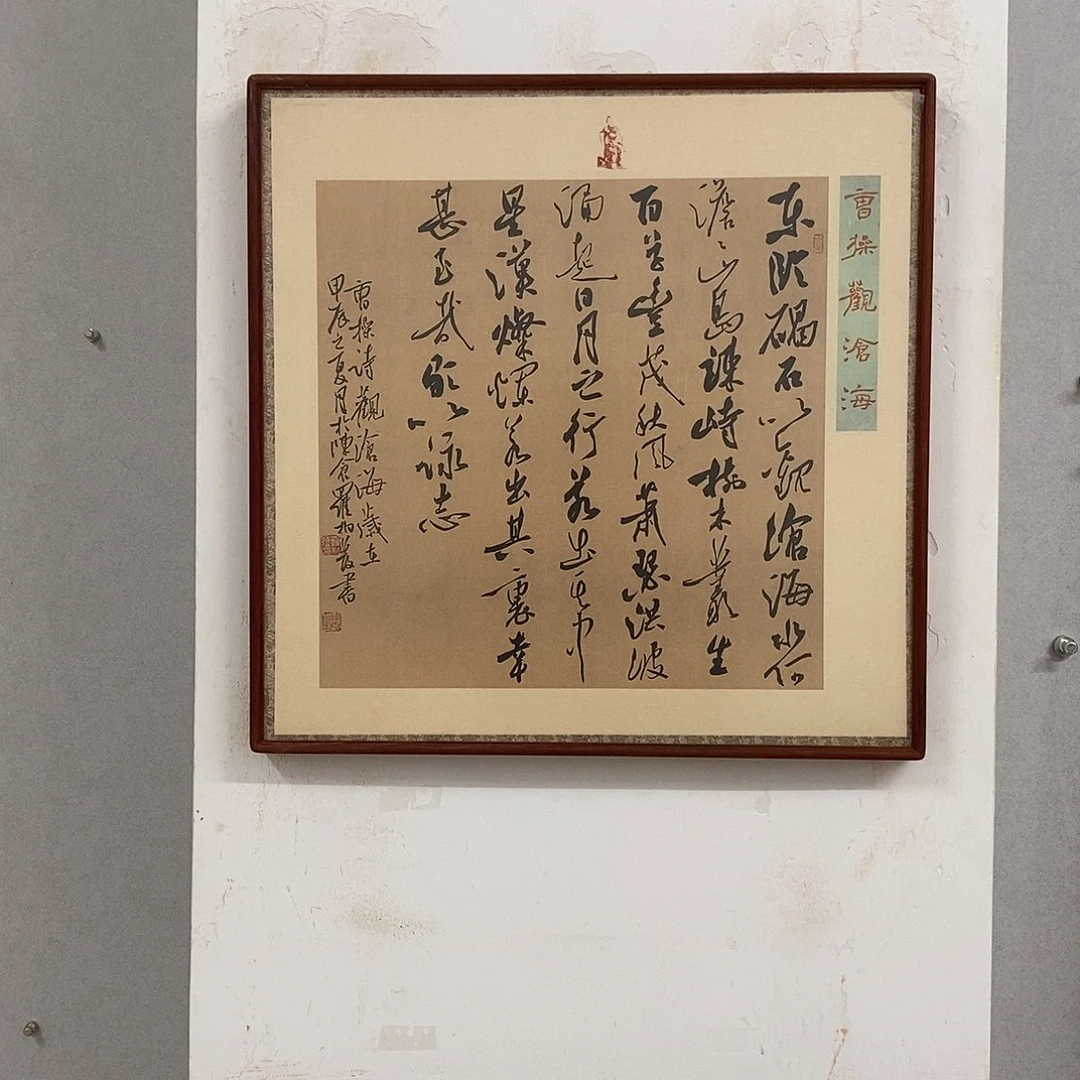 曹操觀滄海
東臨碣石以觀滄海水何
澹澹山島竦峙樹木叢生
百草豐茂秋風蕭瑟洪波
涌起日月之行若出其中
星漢燦爛若出其裏幸
甚至哉歌以詠志
曹操詩觀滄海歲在
甲辰之夏月於陳倉羅書